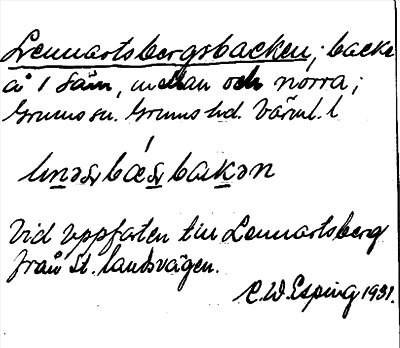 Lennartsbergsbacken; backe
å 1 Säm, mellan och norra;
Grums sn. Grums hd. Värml. l
lınəs̱bæs̱bakən
Vid uppfarten till Lennartsberg
från St. landsvägen.
C. W. Esping 1931.